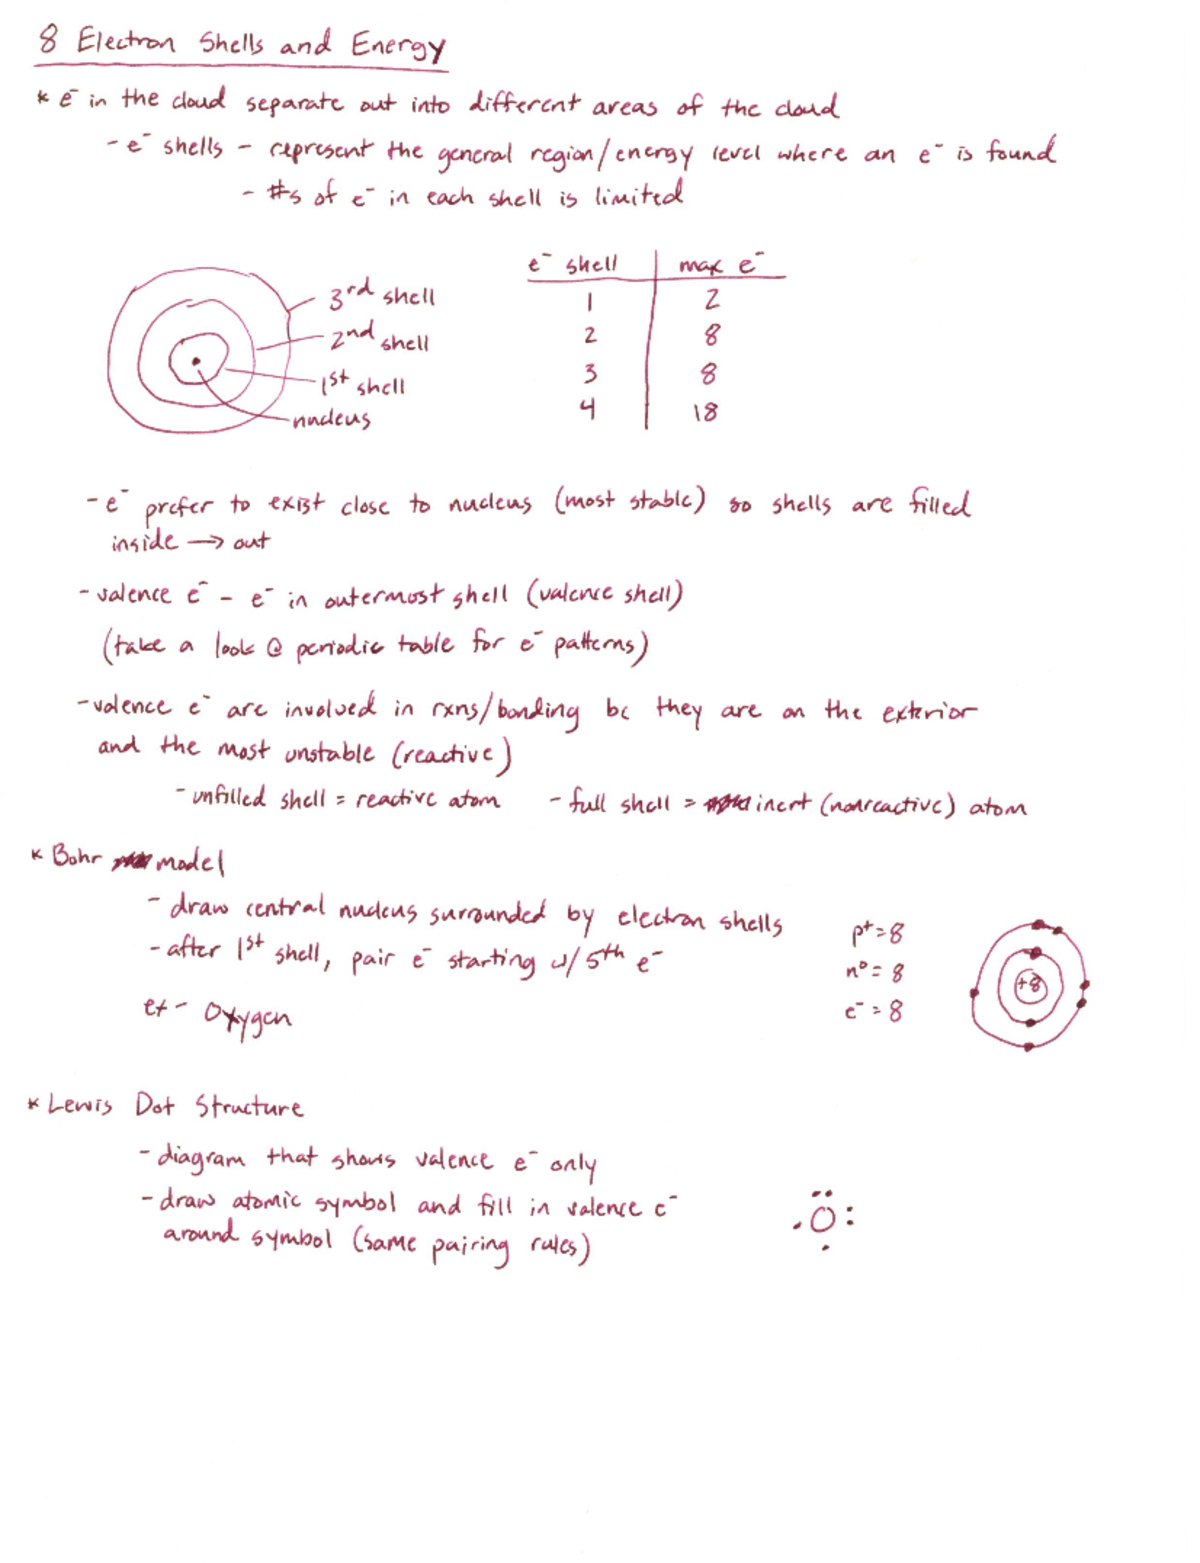 8 Electron Shells and Energy
* e⁻ in the cloud separate out into different areas of the cloud
- e⁻ shells - represent the general region/energy level where an e⁻ is found
- #s of e⁻ in each shell is limited
e⁻ shell | max e⁻
1 | 2
2 | 8
3 | 8
4 | 18
3rd shell
2nd shell
1st shell
nucleus
- e⁻ prefer to exist close to nucleus (most stable) so shells are filled
inside → out
- valence e⁻ - e⁻ in outermost shell (valence shell)
(take a look @ periodic table for e⁻ patterns)
- valence e⁻ are involved in rxns/bonding bc they are on the exterior
and the most unstable (reactive)
- unfilled shell = reactive atom - full shell = inert (nonreactive) atom
* Bohr model
- draw central nucleus surrounded by electron shells
- after 1st shell, pair e⁻ starting w/ 5th e⁻
ex - Oxygen
p⁺ = 8
n⁰ = 8
e⁻ = 8
+8
* Lewis Dot Structure
- diagram that shows valence e⁻ only
- draw atomic symbol and fill in valence e⁻
around symbol (same pairing rules)
O